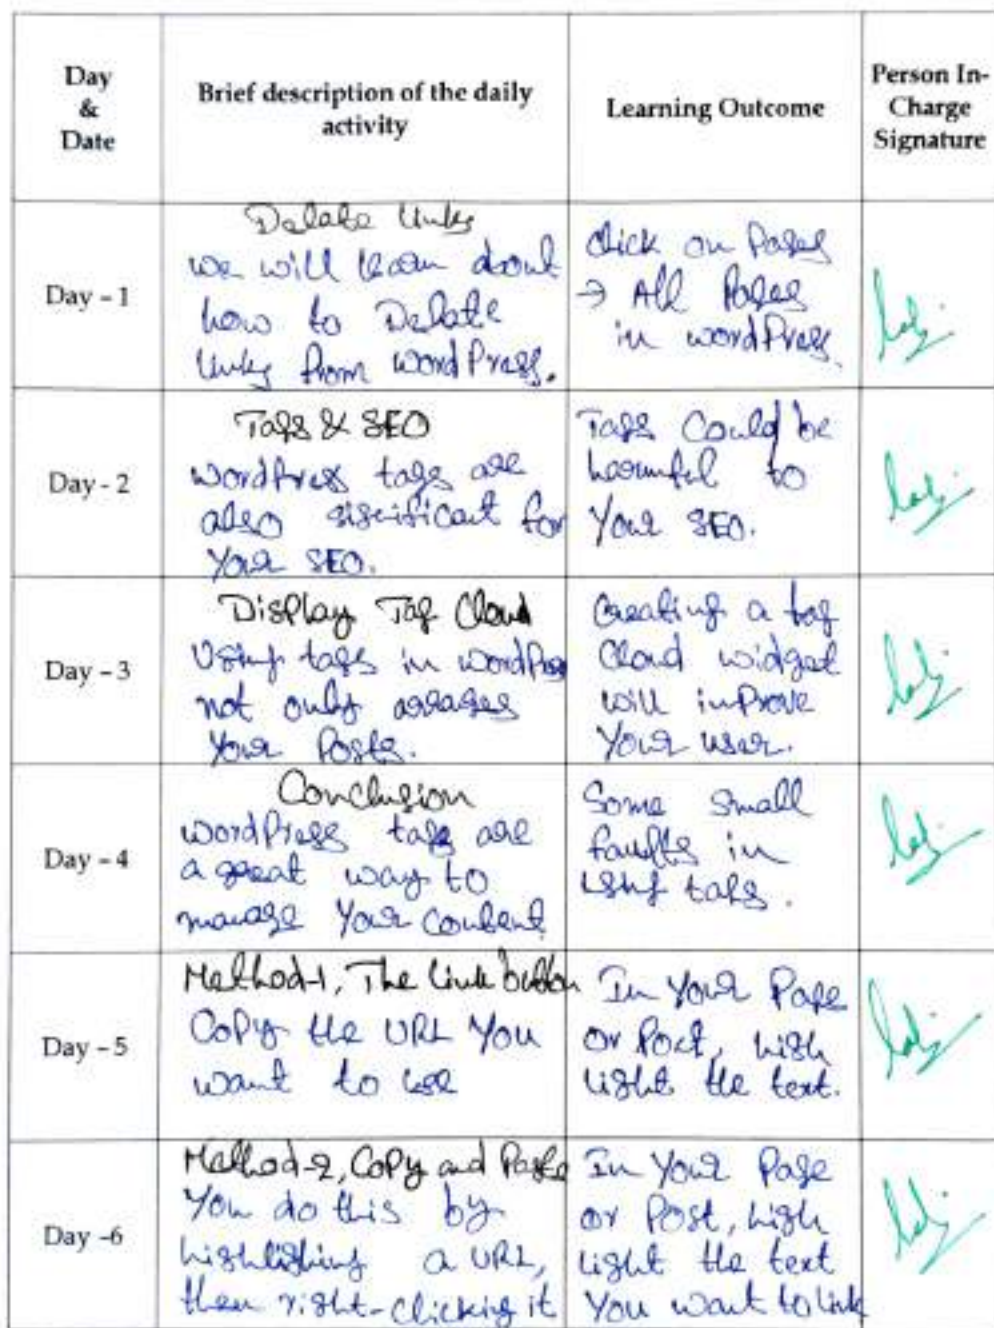 Day
&
Date
Brief description of the daily
activity
Learning Outcome
Person In-
Charge
Signature
Day - 1
Delate links
we will learn about
how to Delate
links from wordPress.
click on Pages
→ All Pages
in wordPress.
Day - 2
Tags & SEO
wordPress tags are
also significant for
Your SEO.
Tags Could be
harmful to
Your SEO.
Day - 3
Display Tag Cloud
Using tags in wordPress
not only arrages
Your Posts.
Creating a tag
Cloud widget
will improve
Your user.
Day - 4
Conclusion
wordPress tags are
a great way to
manage Your Content
Some small
faults in
using tags.
Day - 5
Method-1, The link button
Copy the URL You
want to use
In Your Page
or Post, high
light the text.
Day -6
Method-2, Copy and Paste
You do this by
highlighing a URL,
then right-clicking it
In Your Page
or Post, high
light the text
You want to link